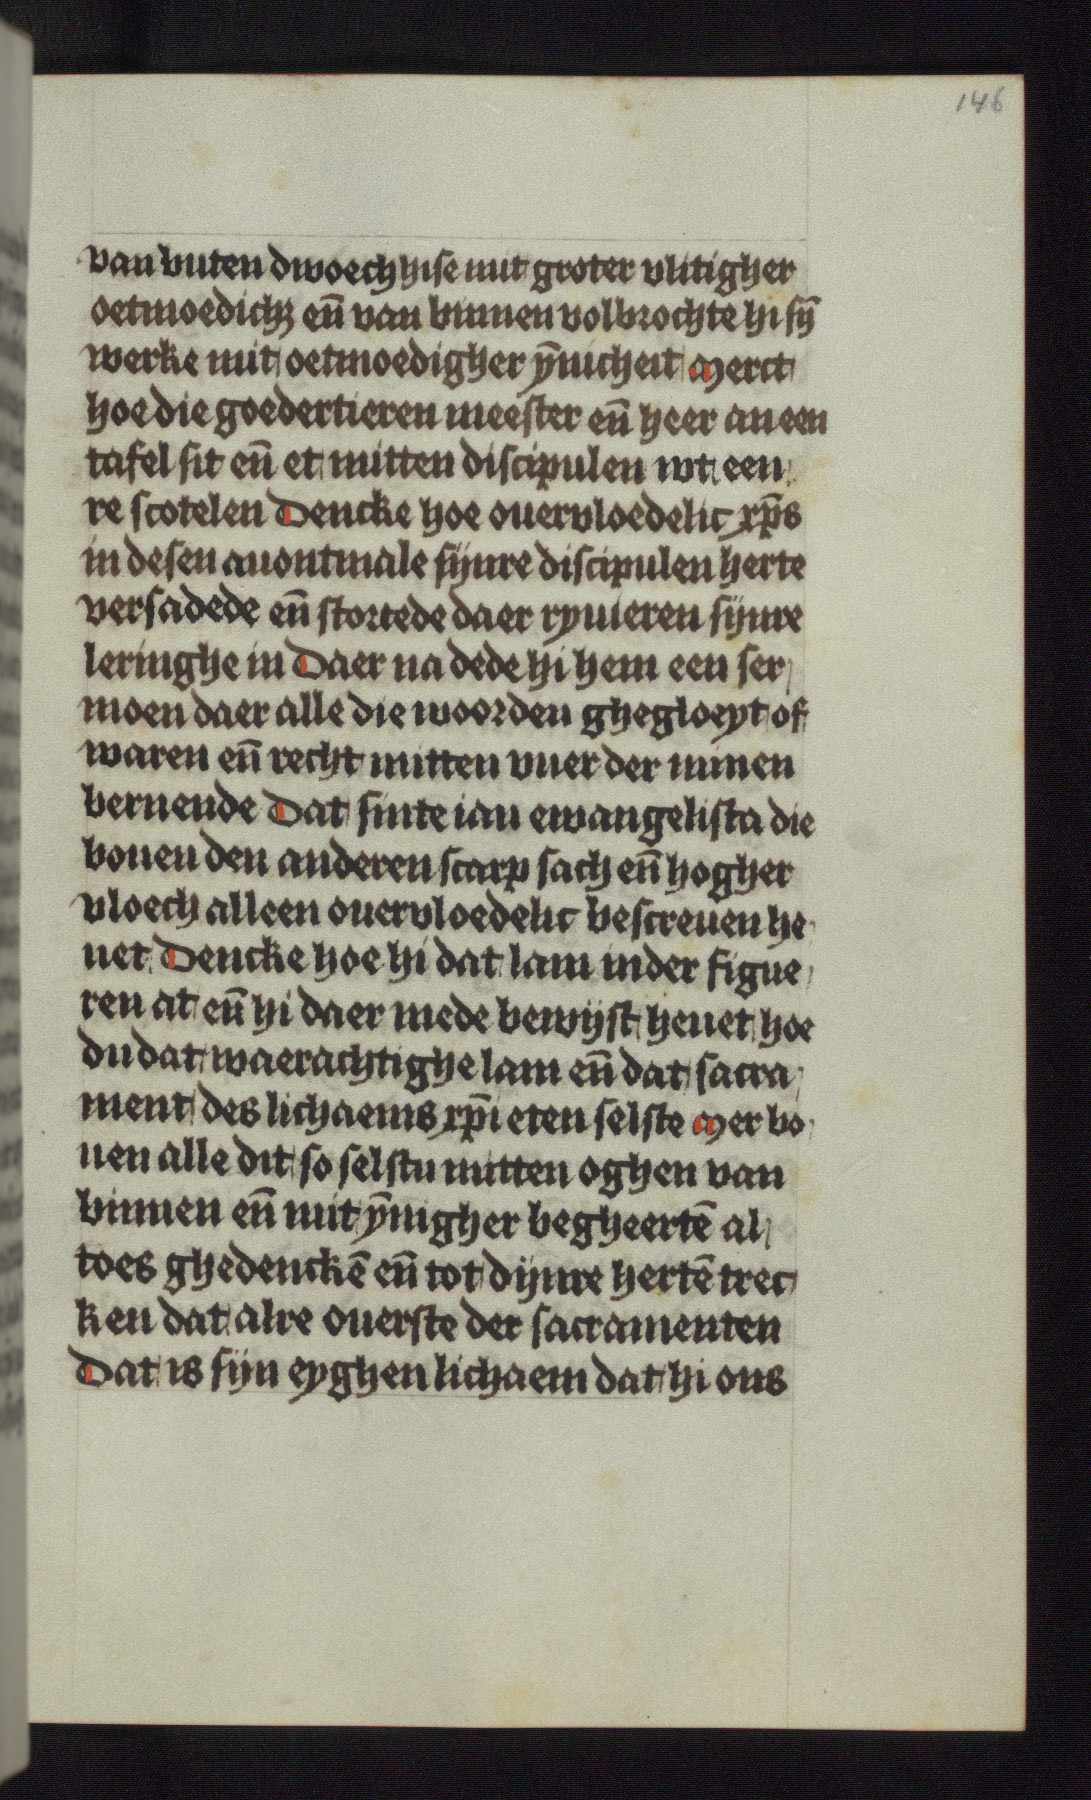 146
van buten dwoech hise mit groter vlitigher
oetmoedichꝫ en̄ van binnen volbrochte hi sȳ
werke mit oetmoedigher ȳnicheit Merct
hoe die goedertieren meester en̄ heer an een
tafel sit en̄ et mitten discipulen wt een
re scotelen Dencke hoe ouervloedelic xp̄s
in desen auontmale sijnre discipulen herte
versadede en̄ stortede daer ryuieren sijnre
leringhe in Daer na dede hi hem een ser
moen daer alle die woorden ghegloeyt of
waren en̄ recht mitten vuer der minen
bernende Dat sinte ian ewangelista die
bouen den anderen scarp sach en̄ hogher
vloech alleen ouervloedelic bescreuen he
uet Dencke hoe hi dat lam in der figue
ren at en̄ hi daer mede bewijst heuet hoe
du dat waerachtighe lam en̄ dat sacra
ment des lichaems xp̄i eten selste Mer bo
uen alle dit so selstu mitten oghen van
binnen en̄ mit ȳnigher begheertē al
toes ghedenckē en̄ tot dijnre hertē trec
ken dat alre ouerste der sacramenten
Dat is sijn eyghen lichaem dat hi ons